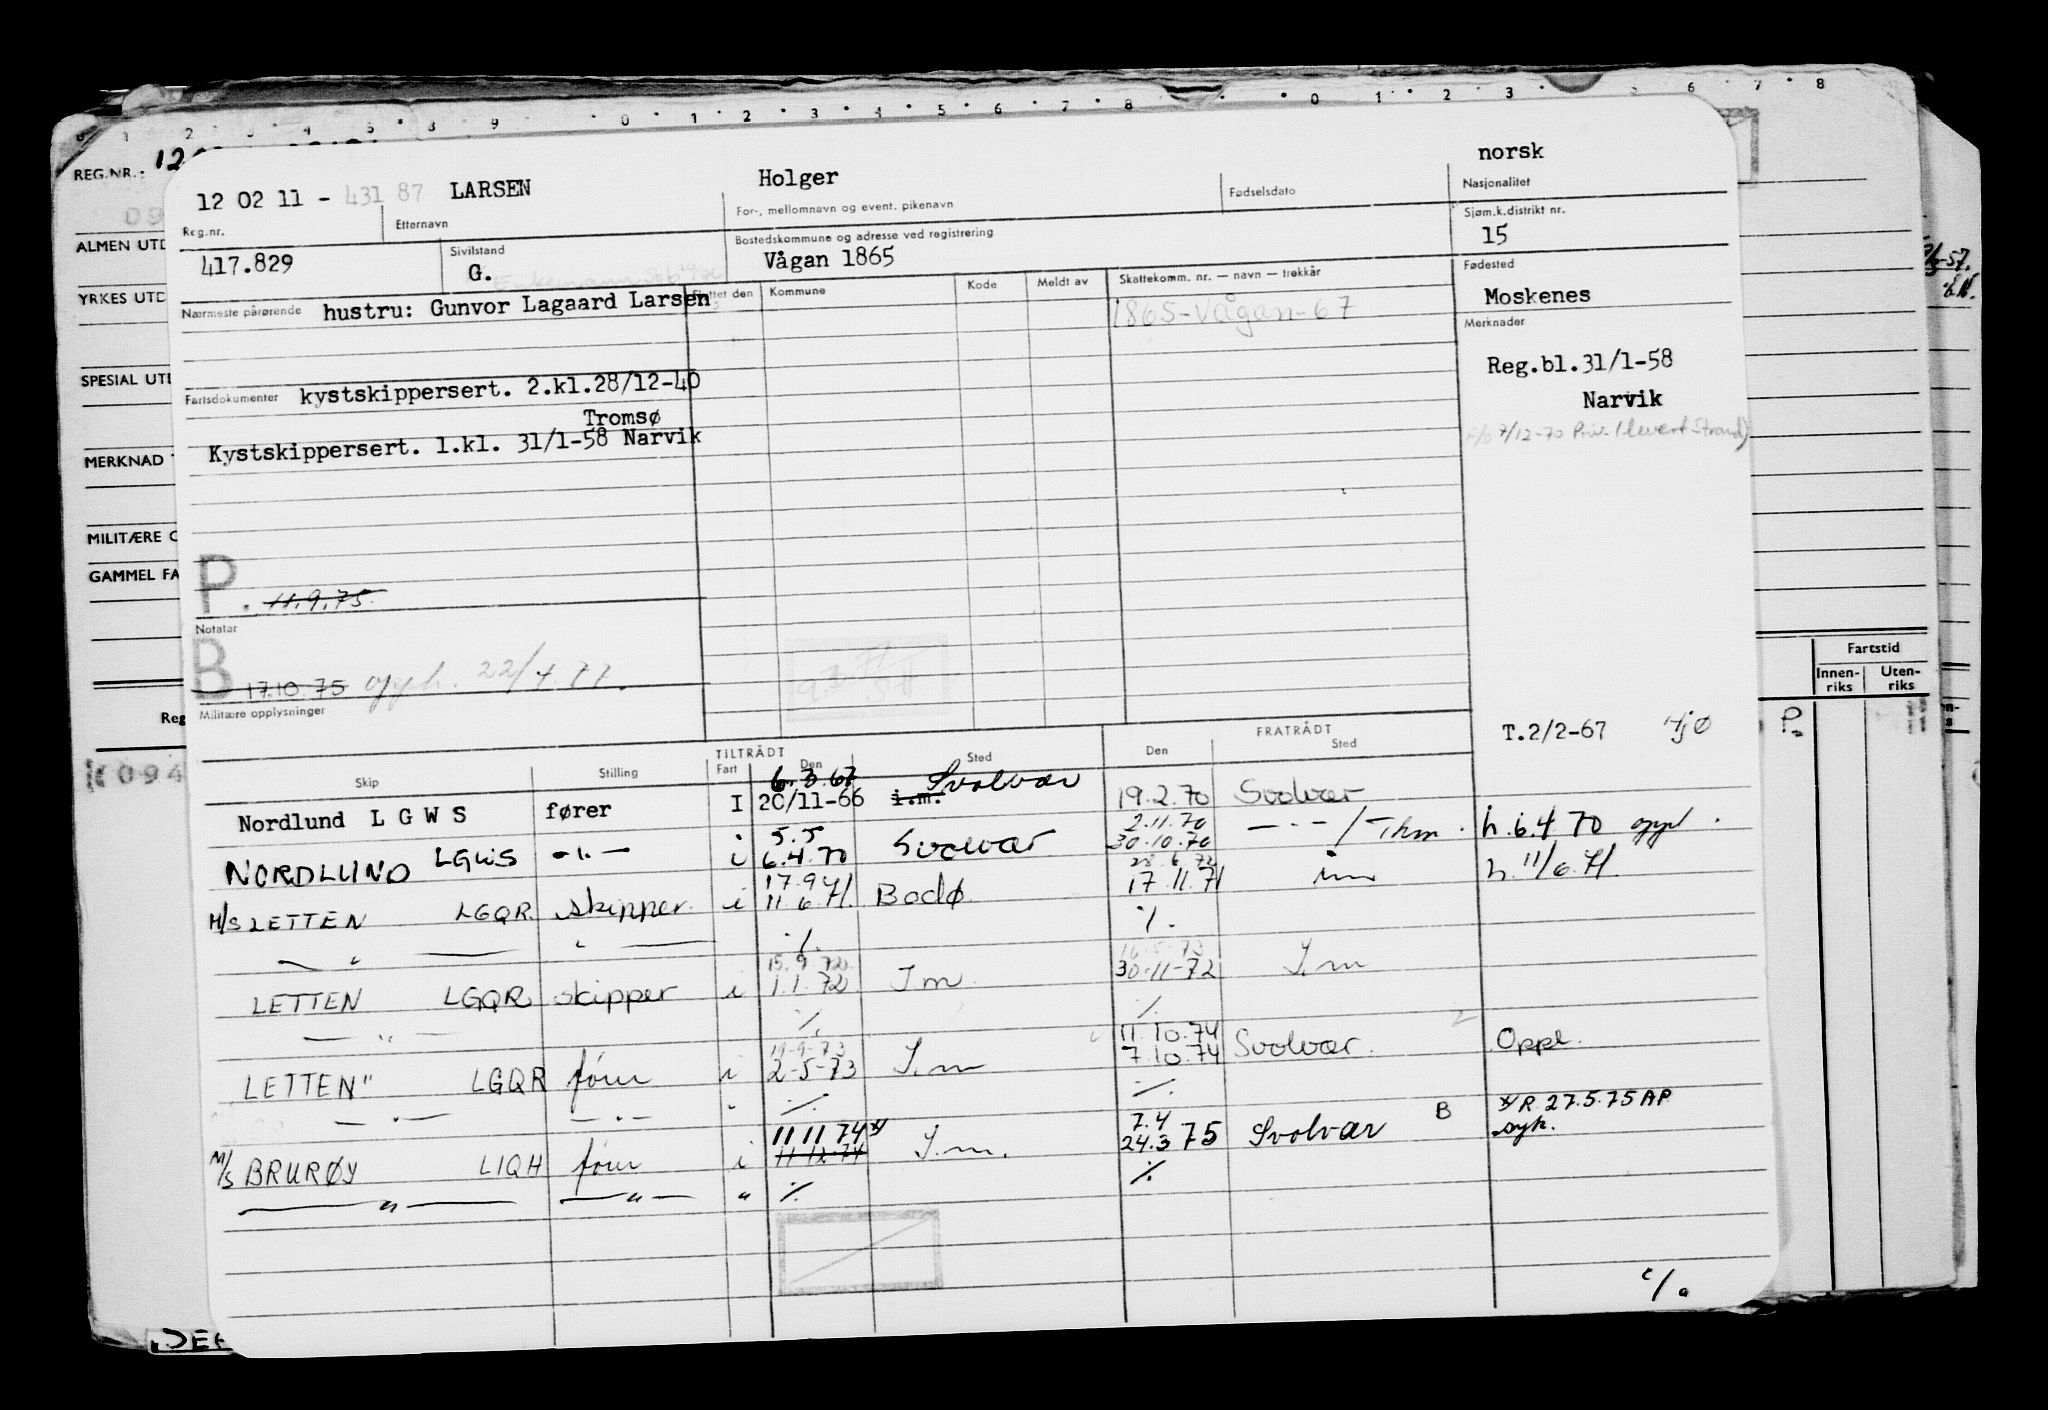 REG.NR.
norsk
12 02 11 - 431 87 LARSEN Holger
Reg.nr. Etternavn For-, mellomnavn og event. pikenavn Fødselsdato Nasjonalitet
417.829 Sivilstand G. Bostedskommune og adresse ved registrering Vågan 1865 Sjøm.k.distrikt nr. 15
Nærmeste pårørende hustru: Gunvor Lagaard Larsen
Flyttet den Kommune Kode Meldt av Skattekomm. nr. — navn — trekkår Fødested
1865-Vågan-67 Moskenes
Merknader
Reg.bl.31/1-58
Narvik
Fartsdokumenter kystskippersert. 2.kl.28/12-40
Tromsø
Kystskippersert. 1.kl. 31/1-58 Narvik
P. 11.9.75.
Notater
B 17.10.75 opph. 22/4.77.
Militære opplysninger
T.2/2-67
TILTRÅDT FRATRÅDT
Skip Stilling Fart Den Sted Den Sted
6.3.67 Svolvær
Nordlund L G W S fører I 20/11-66 i.m. 19.2.70 Svolvær
5.5 2.11.70
NORDLUND LGWS -"- i 6.4.70 Svolvær 30.10.70 -"- / h. 6.4 70 oppl.
17.9.71 28.6.72
M/S LETTEN LGQR. skipper. i 11.6.71. Bodø 17.11.71 im h. 11/6.71.
— " — " — ./. ./.
15.9.72 16.5-73
LETTEN LGQR skipper i 1.1.72 I m. 30-11-72 I.m
— " — ./. ./.
19-9-73 11.10.74
LETTEN" LGQR fører i 2-5-73 I.m 7.10.74 Svolvær. Oppl.
— " — — " — " ./. ./.
11 11 74 x/ 7.4 B x/ R 27.5.75 AP
M/S BRURØY LIQH fører i 11 12.74 I.m. 24.3 75 Svolvær syk.
— " — — " — " ./. ./.
ALMEN UTD
YRKES UTD
SPESIAL UTD
MERKNAD
MILITÆRE
GAMMEL FA
Reg
094
Fartstid
Innen-riks Uten-riks
P.